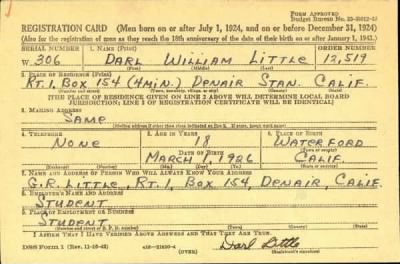 FORM APPROVED
REGISTRATION CARD (Men born on or after July 1, 1924, and on or before December 31, 1924)
(Also for the registration of men as they reach the 18th anniversary of the date of their birth on or after January 1, 1943.)
SERIAL NUMBER 1. NAME (Print) ORDER NUMBER
W. 306 DARL WILLIAM LITTLE 12,519
(First) (Middle) (Last)
2. PLACE OF RESIDENCE (Print)
RT. 1, BOX 154 (4 MIN.) DENAIR STAN. CALIF.
(Number and street) (Town) (County) (State)
[THE PLACE OF RESIDENCE GIVEN ON LINE 2 ABOVE WILL DETERMINE LOCAL BOARD
JURISDICTION; LINE 2 OF REGISTRATION CERTIFICATE WILL BE IDENTICAL]
3. MAILING ADDRESS
SAME
[Mailing address if other than place indicated on line 2. If same, insert word same]
4. TELEPHONE 5. AGE IN YEARS 6. PLACE OF BIRTH
NONE 18 WATERFORD
DATE OF BIRTH (Town or county)
MARCH 1, 1926 CALIF.
(Mo.) (Day) (Yr.) (State or country)
7. NAME AND ADDRESS OF PERSON WHO WILL ALWAYS KNOW YOUR ADDRESS
G.R. LITTLE, RT. 1, BOX 154, DENAIR, CALIF.
8. EMPLOYER'S NAME AND ADDRESS
STUDENT
9. PLACE OF EMPLOYMENT OR BUSINESS
STUDENT
(Number and street or R. F. D. number) (Town) (County) (State)
I AFFIRM THAT I HAVE VERIFIED ABOVE ANSWERS AND THAT THEY ARE TRUE.
DSS Form 1 (Rev. 11-16-42) (OVER) Darl Little
(Registrant's signature)